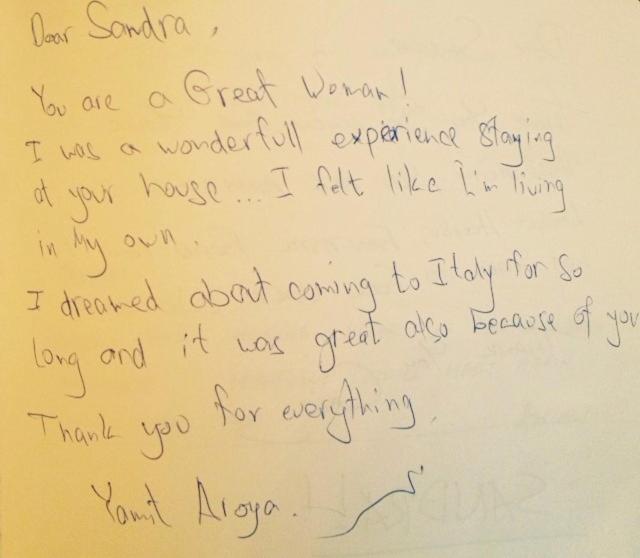 Dear Sandra,
You are a Great Woman!
I was a wonderfull experience staying
at your house... I felt like I'm living
in My own.
I dreamed about coming to Italy for so
long and it was great also because of you
Thank you for everything.
Yamit Aroya.